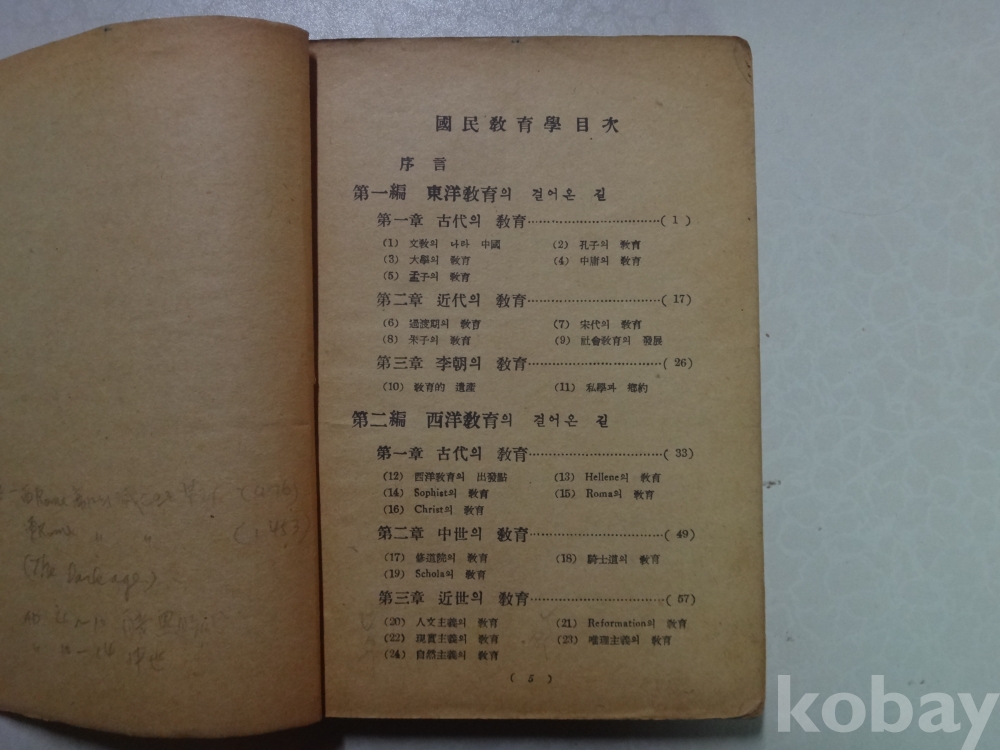 (476)
(1453)
(The Dark age)
國民敎育學目次
序言
第一編 東洋敎育의 걸어온 길
第一章 古代의 敎育……………………………( 1 )
(1) 文敎의 나라 中國 (2) 孔子의 敎育
(3) 大學의 敎育 (4) 中庸의 敎育
(5) 孟子의 敎育
第二章 近代의 敎育……………………………( 17)
(6) 過渡期의 敎育 (7) 宋代의 敎育
(8) 朱子의 敎育 (9) 社會敎育의 發展
第三章 李朝의 敎育……………………………( 26)
(10) 敎育的 遺產 (11) 私學과 鄕約
第二編 西洋敎育의 걸어온 길
第一章 古代의 敎育……………………………( 33)
(12) 西洋敎育의 出發點 (13) Hellene의 敎育
(14) Sophist의 敎育 (15) Roma의 敎育
(16) Christ의 敎育
第二章 中世의 敎育……………………………( 49)
(17) 修道院의 敎育 (18) 騎士道의 敎育
(19) Schola의 敎育
第三章 近世의 敎育……………………………( 57)
(20) 人文主義의 敎育 (21) Reformation의 敎育
(22) 現實主義의 敎育 (23) 唯理主義의 敎育
(24) 自然主義의 敎育
( 5 )
kobay